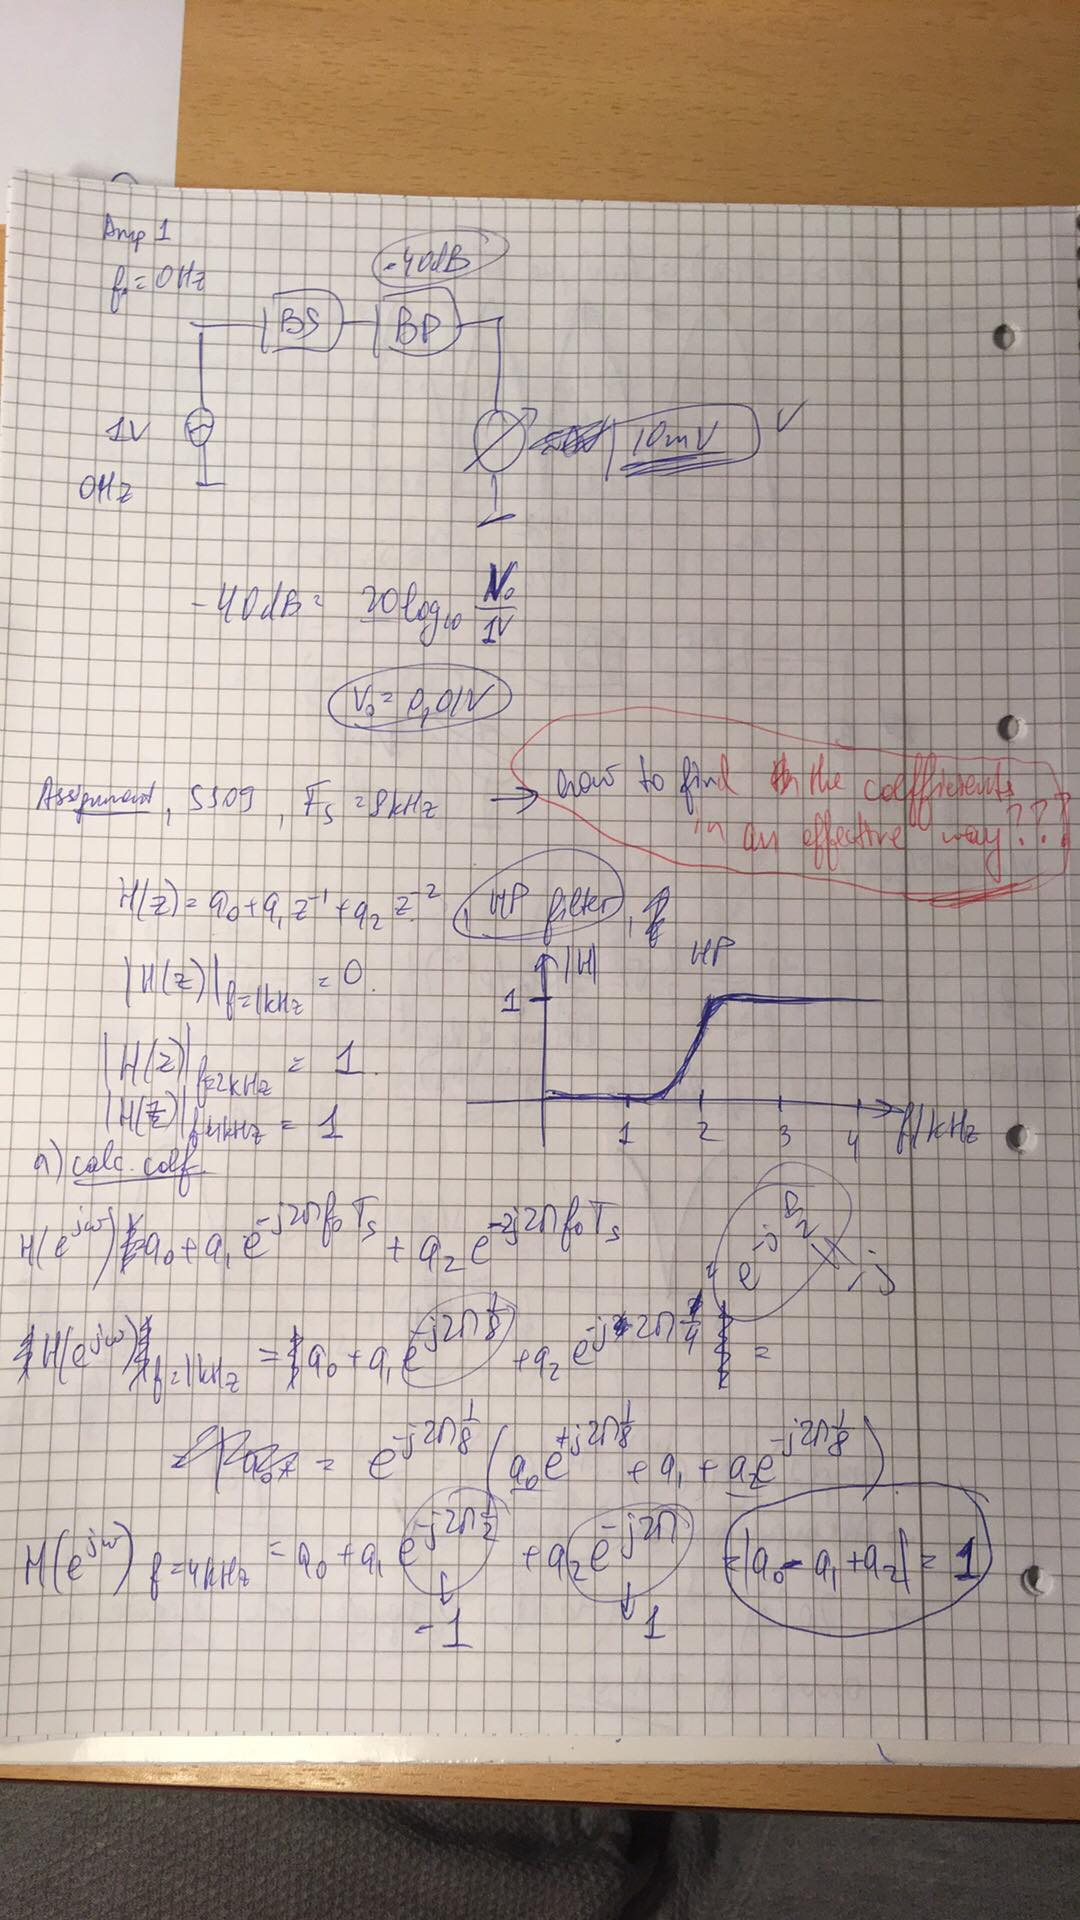 Amp 1
f₀ = 0Hz
-40dB
BS BP
1V
0Hz
10mV V
-40dB = 20log₁₀ V₀/1V
V₀ = 0,01V
Assignment, SS09, Fs = 8kHz → how to find the coefficients
in an effective way???
H(z) = a₀ + a₁z⁻¹ + a₂z⁻², HP filter,
|H(z)|f=1kHz = 0.
|H| HP
1
|H(z)|f=2kHz = 1.
|H(z)|f=4kHz = 1
1 2 3 4 f/kHz
a) calc. coeff.
H(e^jω) = a₀ + a₁e^-j2πf₀Ts + a₂e^-2j2πf₀Ts
e^-jπ/2 = -j
H(e^jω)f=1kHz = a₀ + a₁e^-j2π1/8 + a₂e^-j2π1/4 =
= e^-j2π1/8 (a₀e^+j2π1/8 + a₁ + a₂e^-j2π1/8)
H(e^jω)f=4kHz = a₀ + a₁e^-j2π1/2 + a₂e^-j2π = |a₀ - a₁ + a₂| = 1
-1 1